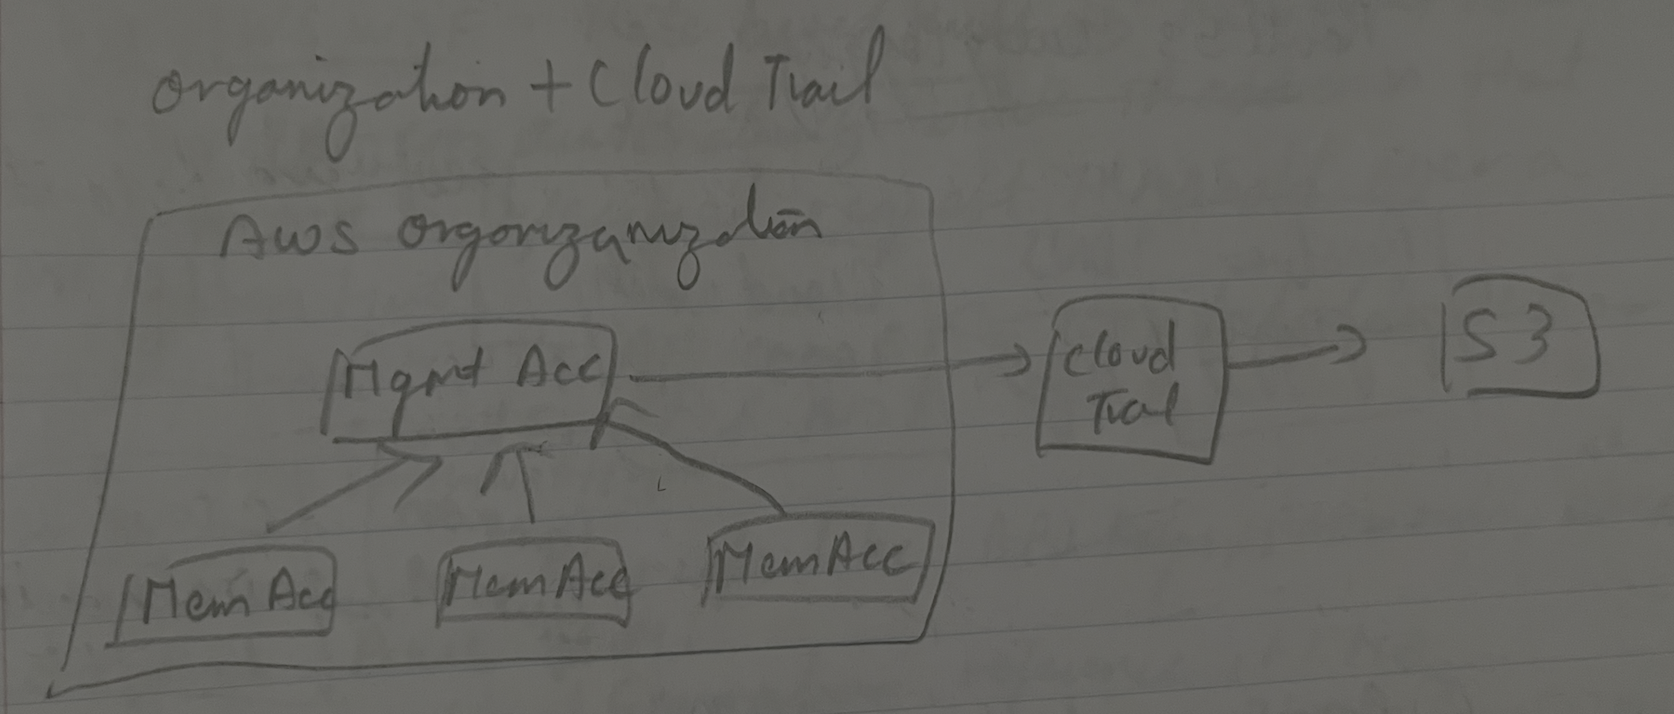 organization + Cloud Trail
AWS Orgonizganization
Mgmt Acc
Cloud
Trail
S3
Mem Acc
Mem Acc
Mem Acc